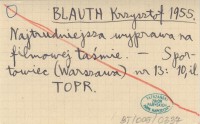 BLAUTH Krzysztof 1955.
Najtrudniejsza wyprawa na
filmowej taśmie. – Spor-
towiec (Warszawa) nr 13: 10, il.
TOPR.